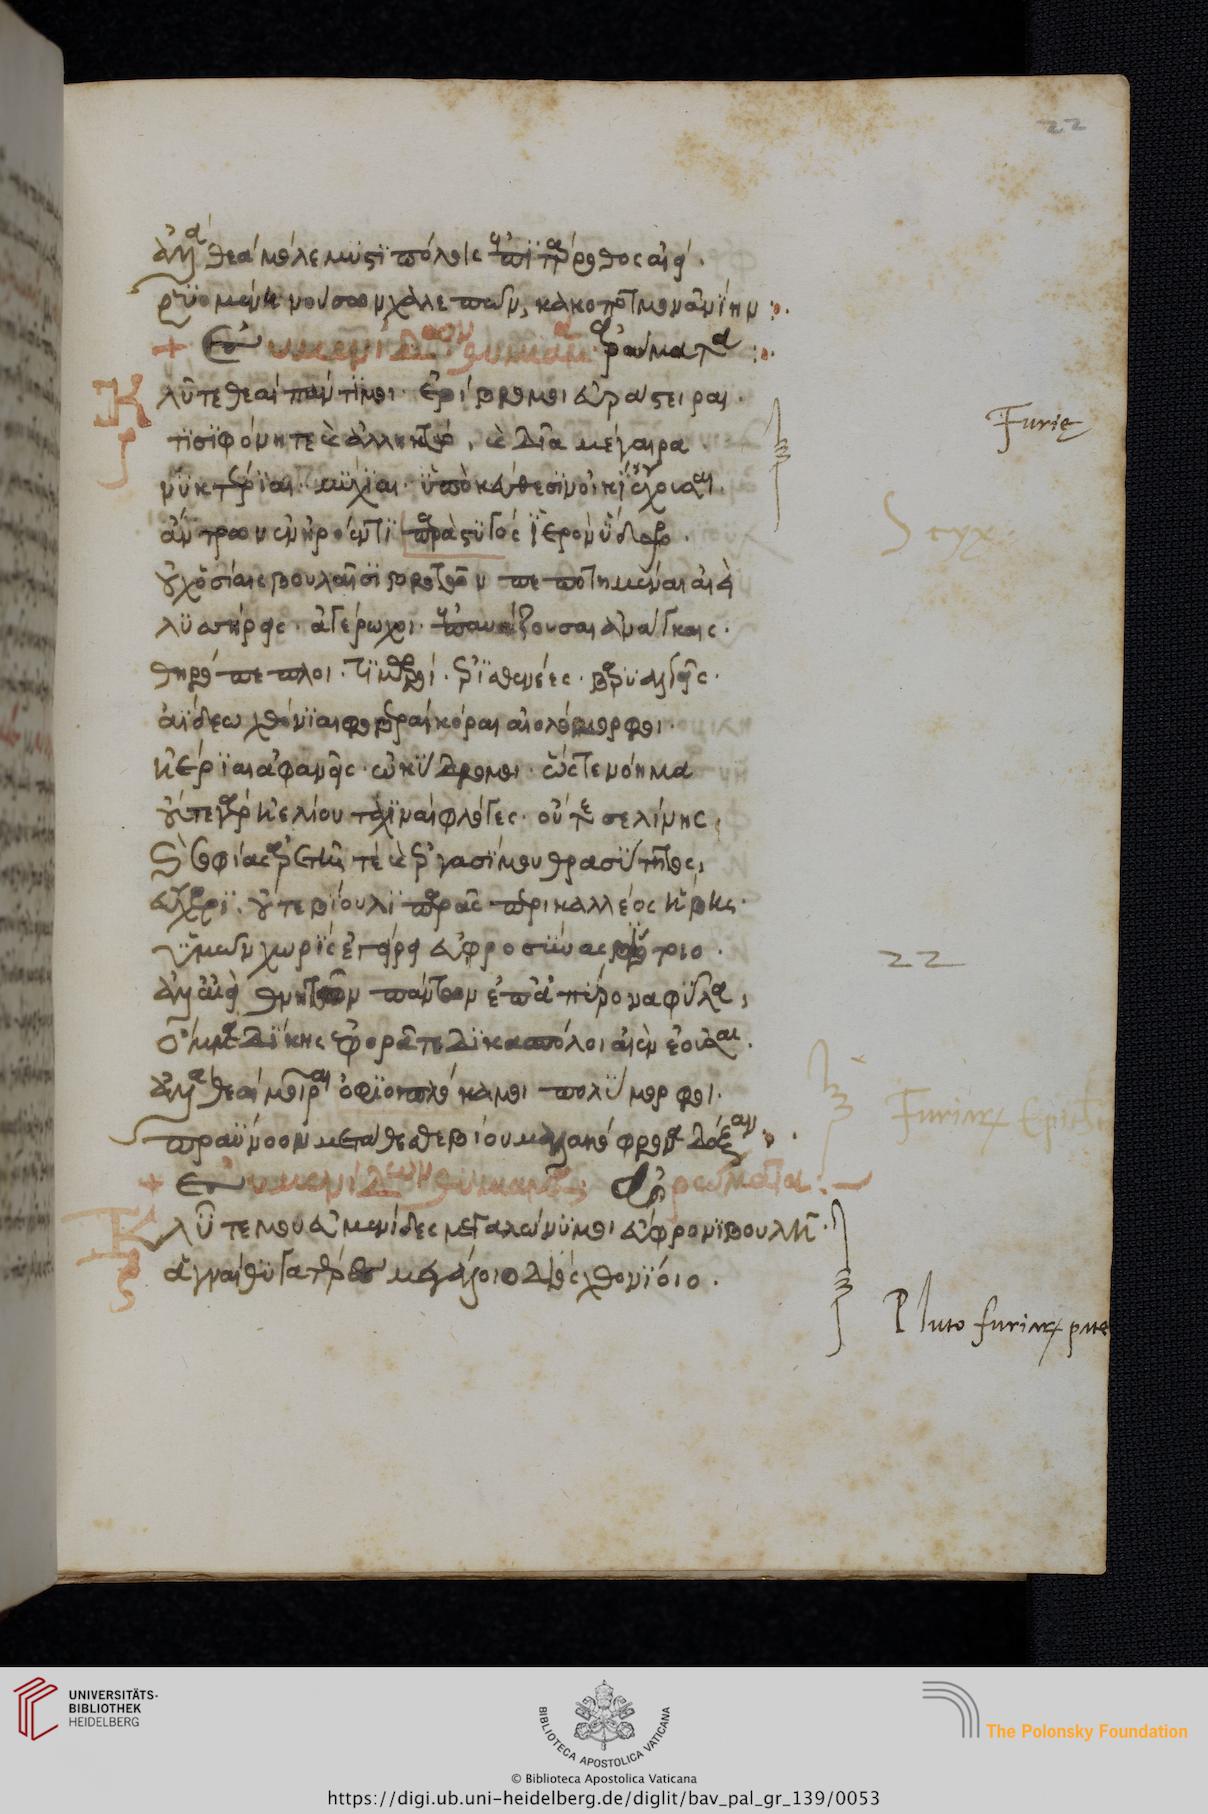 22
ἀλλὰ θεὰ μόλε μύσταις
ῥυομένη νούσων χαλεπῶν, κακόποτμον ἀνίην :.
+ Εὐμενίδων θυμίαμα ἀρώματα :.
Κλῦτε θεαὶ πάντιμοι ἐρίβρομοι εὐάστειραι.
Furię
τισιφόνη τε καὶ ἀλληκτώ, καὶ δῖα μέγαιρα.
νυκτέριαι μύχιαι ὑπὸ κεύθεσιν οἰκί᾽ ἔχουσαι.
ἄντρω ἐν ἠερόεντι παρὰ στυγὸς ἱερὸν ὕδωρ.
Styx
βουλαῖσι βροτῶν πεποτημέναι αἰεὶ
λυσσήρεις ἀγέρωχοι ἀνάγκαις.
θηρόπεπλοι τιμωροὶ ἐρισθενέες βαρυαλγεῖς.
ἀΐδεω χθόνιαι φοβεραὶ κόραι αἰολόμορφοι.
ἠέριαι ἀφανεῖς ὠκυδρόμοι ὥστε νόημα
οὔτε γὰρ ἠελίου ταχιναὶ φλόγες οὔτε σελήνης
σοφίας ἀρετῆς τε καὶ ἐργασίμου θρασύτητος,
οὔτε βίου λιπαρᾶς περικαλλέος ἥβης.
ὑμῶν χωρὶς ἐγείρει εὐφροσύνας βιότοιο.
22
ἀλλ᾽ αἰεὶ θνητῶν πάντων ἐπ᾽ ἀπείρονα φῦλα,
ὄμμα δίκης ἐφορᾶτε δικασπόλοι αἰὲν ἐοῦσαι.
ἀλλὰ θεαὶ μοῖραι ὀφιοπλόκαμοι πολύμορφοι.
Furiarum Epith
πραΰνοον μετάθεσθε βίου μαλακόφρονα δόξαν.
+ Εὐμενίδων θυμίαμα ἀρώματα :
Κλῦτέ μου εὐμενίδες μεγαλώνυμοι εὔφρονι βουλῇ.
ἁγναὶ θυγατέρες μεγάλοιο Διὸς χθονίοιο.
Pluto furiarum pater
UNIVERSITÄTS-
BIBLIOTHEK
HEIDELBERG
BIBLIOTECA APOSTOLICA VATICANA
The Polonsky Foundation
© Biblioteca Apostolica Vaticana
https://digi.ub.uni-heidelberg.de/diglit/bav_pal_gr_139/0053